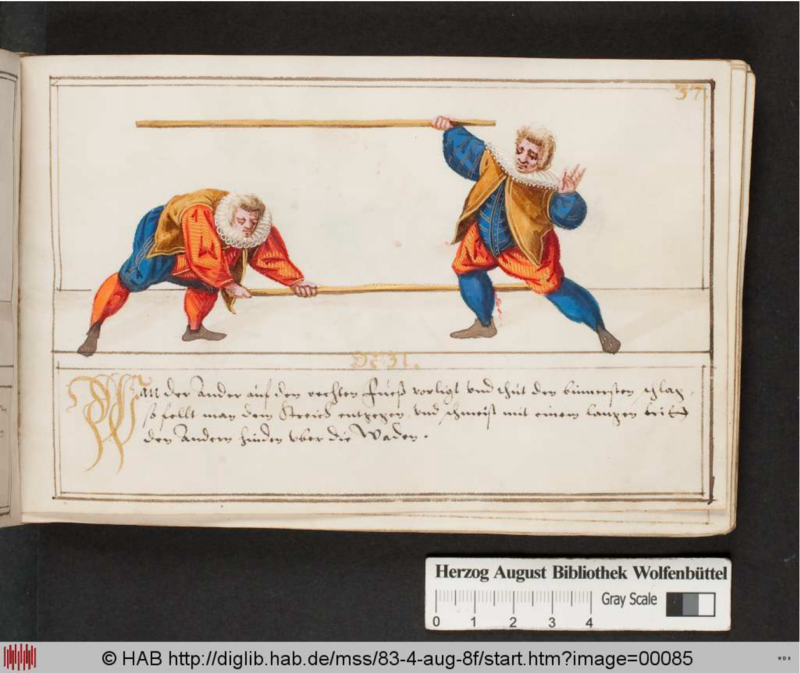 37.
Wan der Ander auf den rechten Fueß vorligt vnd thut den
so fellt man dem Streich entgegen, vnd schmeist mit einem langen
den Andern hinden vber die Waden.
Herzog August Bibliothek Wolfenbüttel
Gray Scale
0 1 2 3 4
© HAB http://diglib.hab.de/mss/83-4-aug-8f/start.htm?image=00085